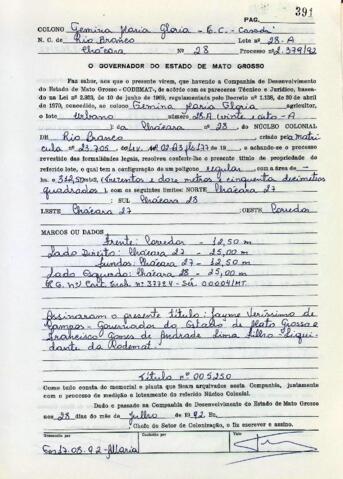 391
PAG.
COLONO Gemina Maria Gloria - E.C. - Casada
N. C. de Rio Branco Lote nº 28-A
Chácara Nº 28 Processo nº 2.379/92
O GOVERNADOR DO ESTADO DE MATO GROSSO
Faz saber, aos que o presente virem, que havendo a Companhia de Desenvolvimento
do Estado de Mato Grosso - CODEMAT-, de acôrdo com os pareceres Técnico e Jurídico, basea-
do na Lei nº 2.863, de 10 de junho de 1969, regulamentada pelo Decreto nº 1.138, de 30 de abril
de 1970, concedido, ao colono Gemina Maria Gloria agricultor,
o lote Urbano número 28.A (vinte e oito - A
) da Chácara nº 28, do NÚCLEO COLONIAL
DE Rio Branco criado pela matri
cula nº 23.705 do Liv. nº 02.A3 fls 177 de 19, e achando-se o processo
revestido das formalidades legais, resolveu conferir-lhe o presente título de propriedade do
referido lote, o qual tem a configuração de um polígono regular com a área de
ha 312,50mts2 (trezentos e doze metros e cinquenta decimetros
quadrados), com os seguintes limites: NORTE Chácara 27
; SUL Chácara 28
LESTE Chácara 27 ; OESTE Corredor
MARCOS OU DADOS
Frente: Corredor - 12,50 m
Lado Direito: Chácara 27 - 25,00 m
Fundos: Chácara 27 - 12,50 m
Lado Esquerdo: Chácara 28 - 25,00 m
nº 37724 - Sér. 00004/MT
Assinaram o presente Titulo: Jayme Veríssimo de
Campos - Governador do Estado de Mato Grosso e
Francisco Gomes de Andrade Lima Filho - Liqui-
dante da Codemat.
Título nº 005250
Como tudo consta do memorial e planta que ficam arquivados nesta Companhia, juntamente
com o processo de medição e loteamento do referido Núcleo Colonial.
Dado e passado na Companhia de Desenvolvimento do Estado de Mato Grosso
aos 28 dias do mês de Julho de 1992 Eu,
Chefe do Setor de Colonização, o fiz escrever e assino.
Conferido por Visto
17.08.92 - Maria